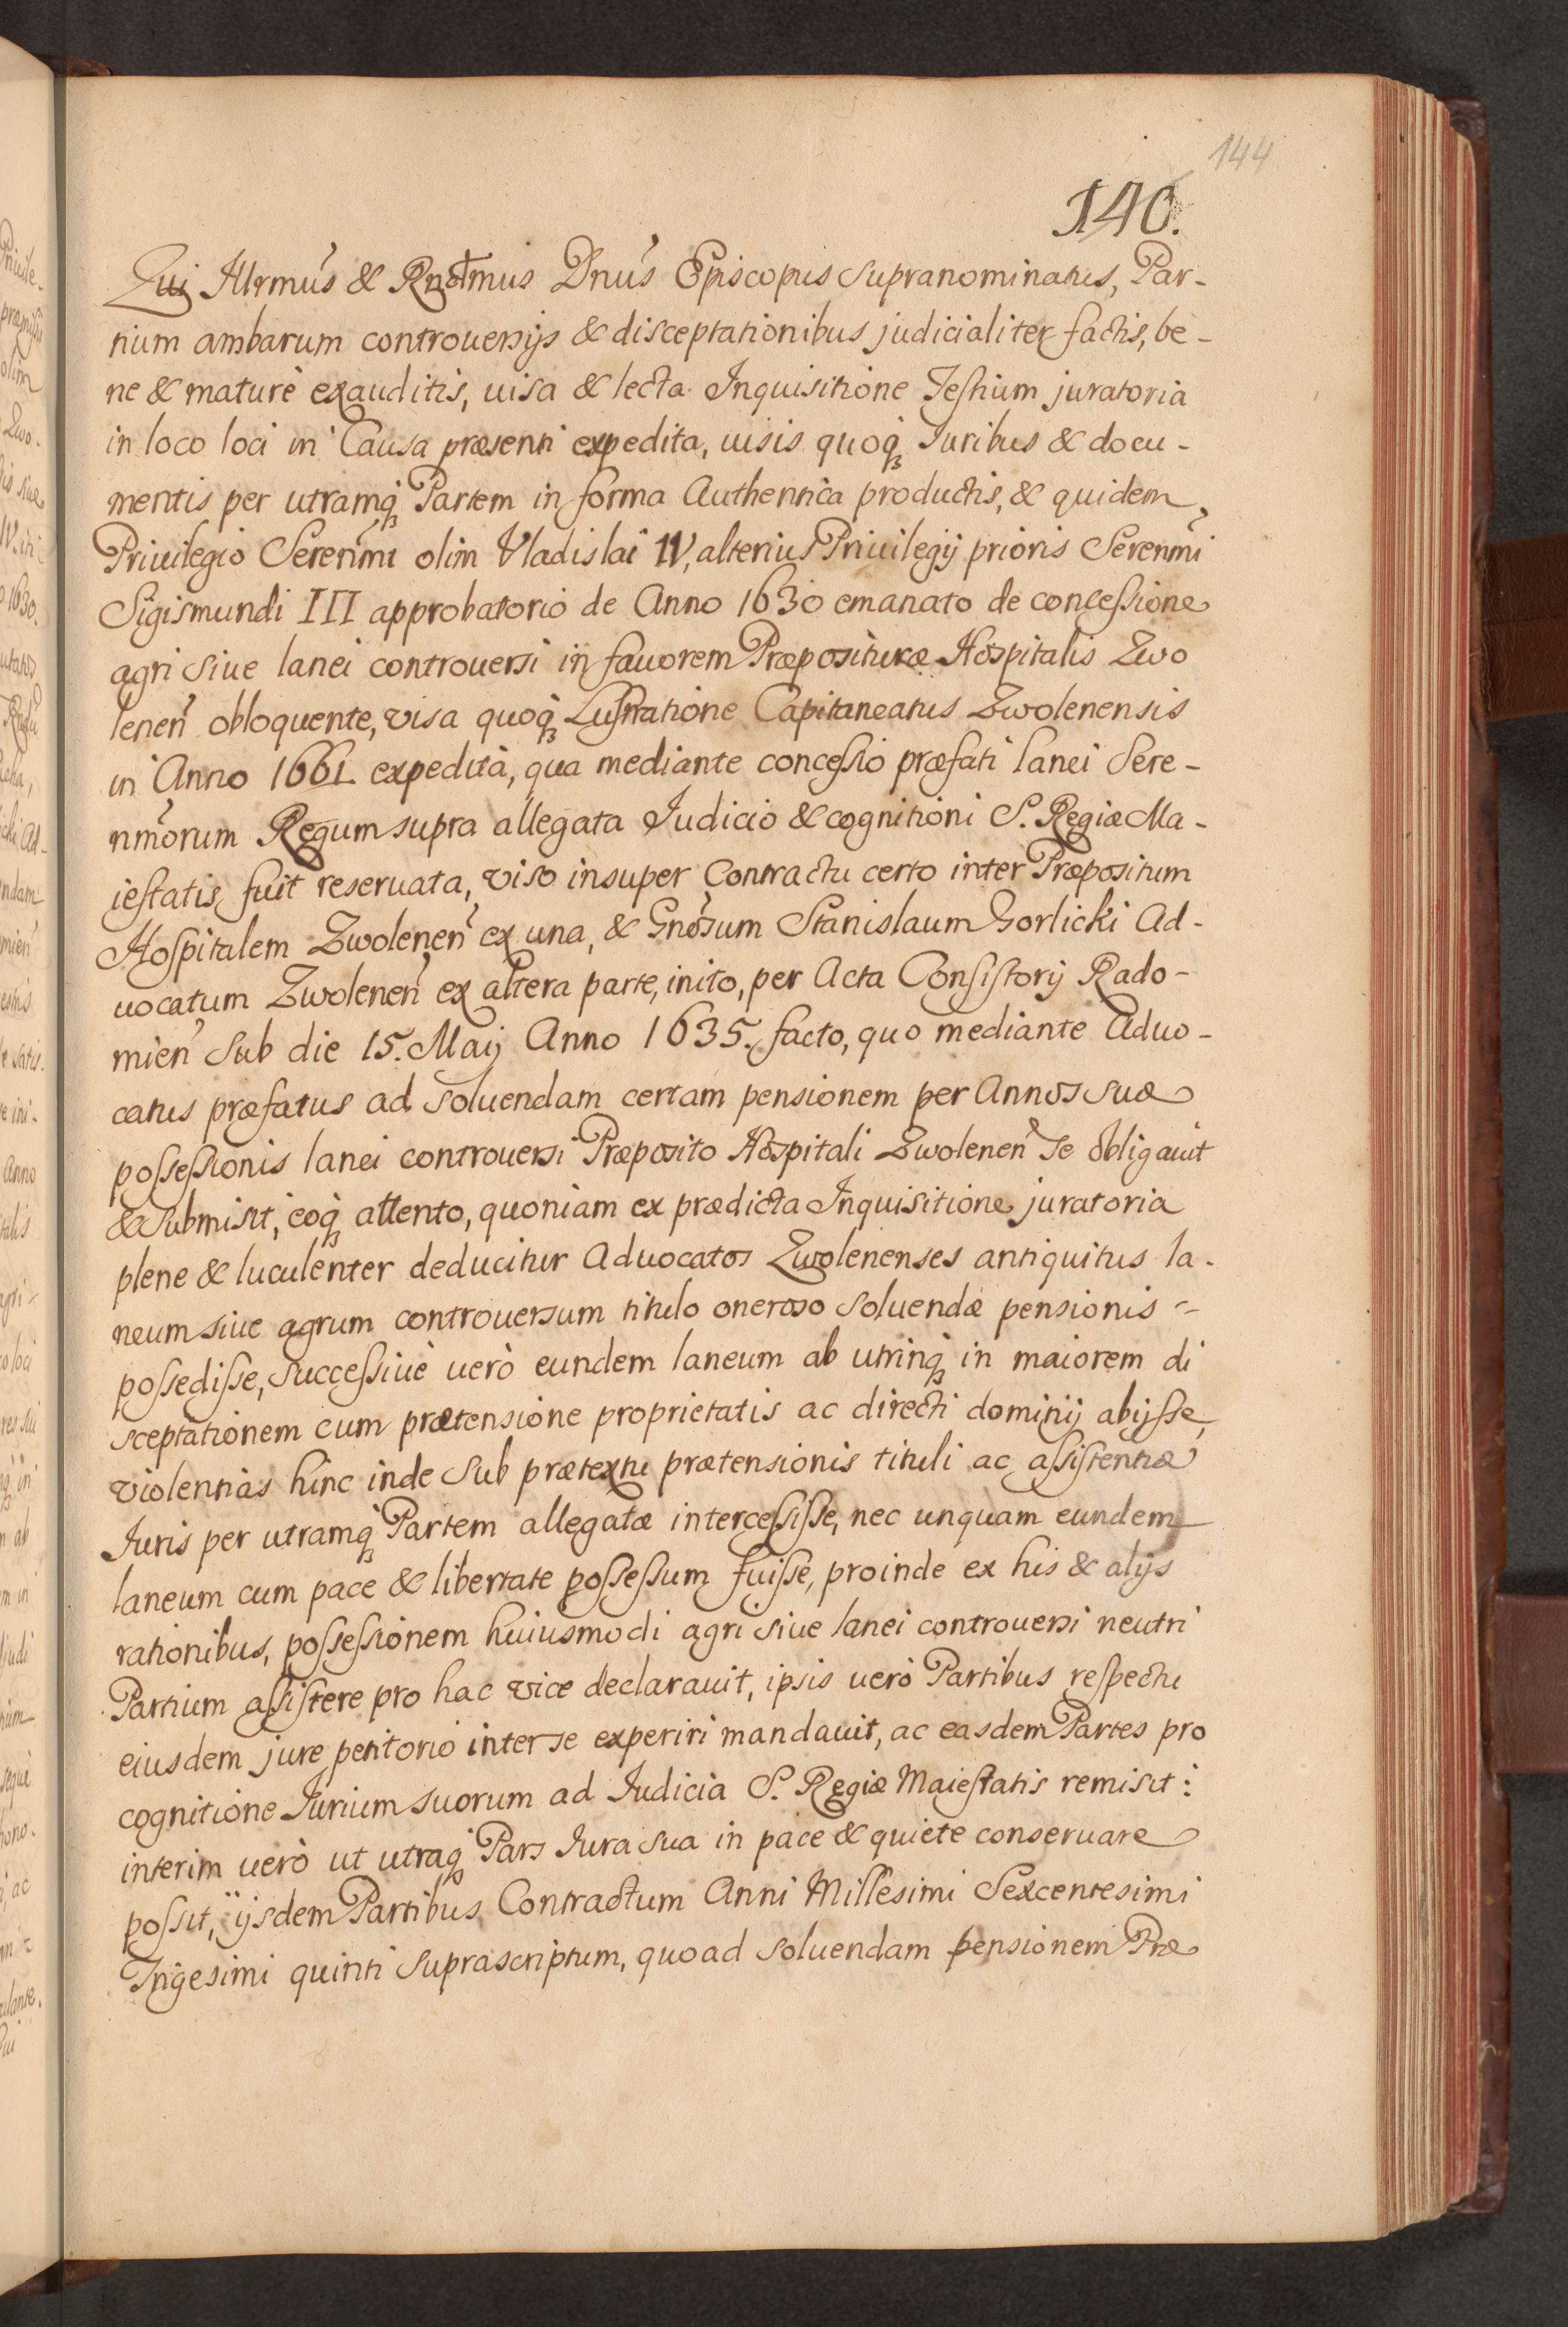 144
140.
Qui Illrmus & Rndmus Dnus Episcopus supranominatus, Par-
tium ambarum controuersijs & disceptationibus judicialiter factis, be-
ne & maturè exauditis, uisa & lecta Inquisitione Testium juratoria
in loco loci in Causa præsenti expedita, uisis quoq Iuribus & docu-
mentis per utramq Partem in forma Authentica productis, & quidem
Priuilegio Serenmi olim Vladislai IV, alterius Priuilegij prioris Serenmi
Sigismundi III approbatorio de Anno 1630 emanato de concessione
agri siue lanei controuersi in fauorem Præpositure Hospitalis Zwo
lenen obloquente, visa quoq Lustratione Capitaneatus Zwolenensis
in Anno 1661 expedità, qua mediante concessio præfati lanei Sere-
nmorum Regum supra allegata Iudicio & cognitioni S. Regiæ Ma-
iestatis fuit reseruata, viso insuper Contractu certo inter Præpositum
Hospitalem Zwolenen ex una, & Gnosum Stanislaum Gorlicki Ad-
uocatum Zwolenen ex altera parte, inito, per Acta Consistorij Rado-
mien sub die 15. Maij Anno 1635. facto, quo mediante Aduo-
catus præfatus ad soluendam certam pensionem per Annos suæ
possessionis lanei controuersi Præposito Hospitali Zwolenen se obligauit
& submisit, eoq attento, quoniam ex prædicta Inquisitione juratoria
plene & luculenter deducitur Aduocatos Zwolenenses antiquitus la-
neum siue agrum controuersum titulo oneroso soluendæ pensionis
possedisse, successiuè uerò eundem laneum ab utrinq in maiorem di
sceptationem cum prætensione proprietatis ac directi dominij abijsse,
violentias hinc inde sub prætextu prætensionis tituli ac assistentiæ
Iuris per utramq Partem allegatæ intercessisse, nec unquam eundem
laneum cum pace & libertate possessum fuisse, proinde ex his & alijs
rationibus, possessionem huiusmodi agri siue lanei controuersi neutri
Partium assistere pro hac vice declarauit, ipsis uerò Partibus respectu
eiusdem jure petitorio inter se experiri mandauit, ac easdem Partes pro
cognitione Iurium suorum ad Iudicia S. Regiæ Maiestatis remisit:
interim uerò ut utraq Pars Iura sua in pace & quiete conseruare
possit, ijsdem Partibus Contractum Anni Millesimi Sexcentesimi
Trigesimi quinti suprascriptum, quoad soluendam pensionem Præ